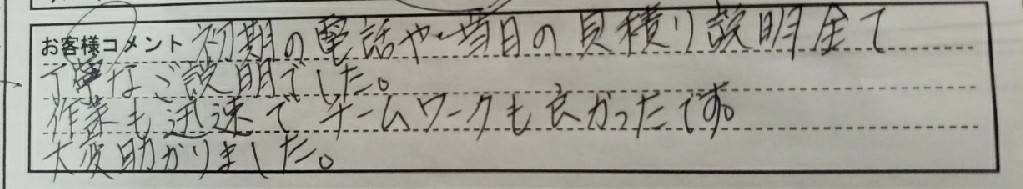 お客様コメント 初期の電話や当日の見積り説明全て
丁寧なご説明でした。
作業も迅速でチームワークも良かったです。
大変助かりました。